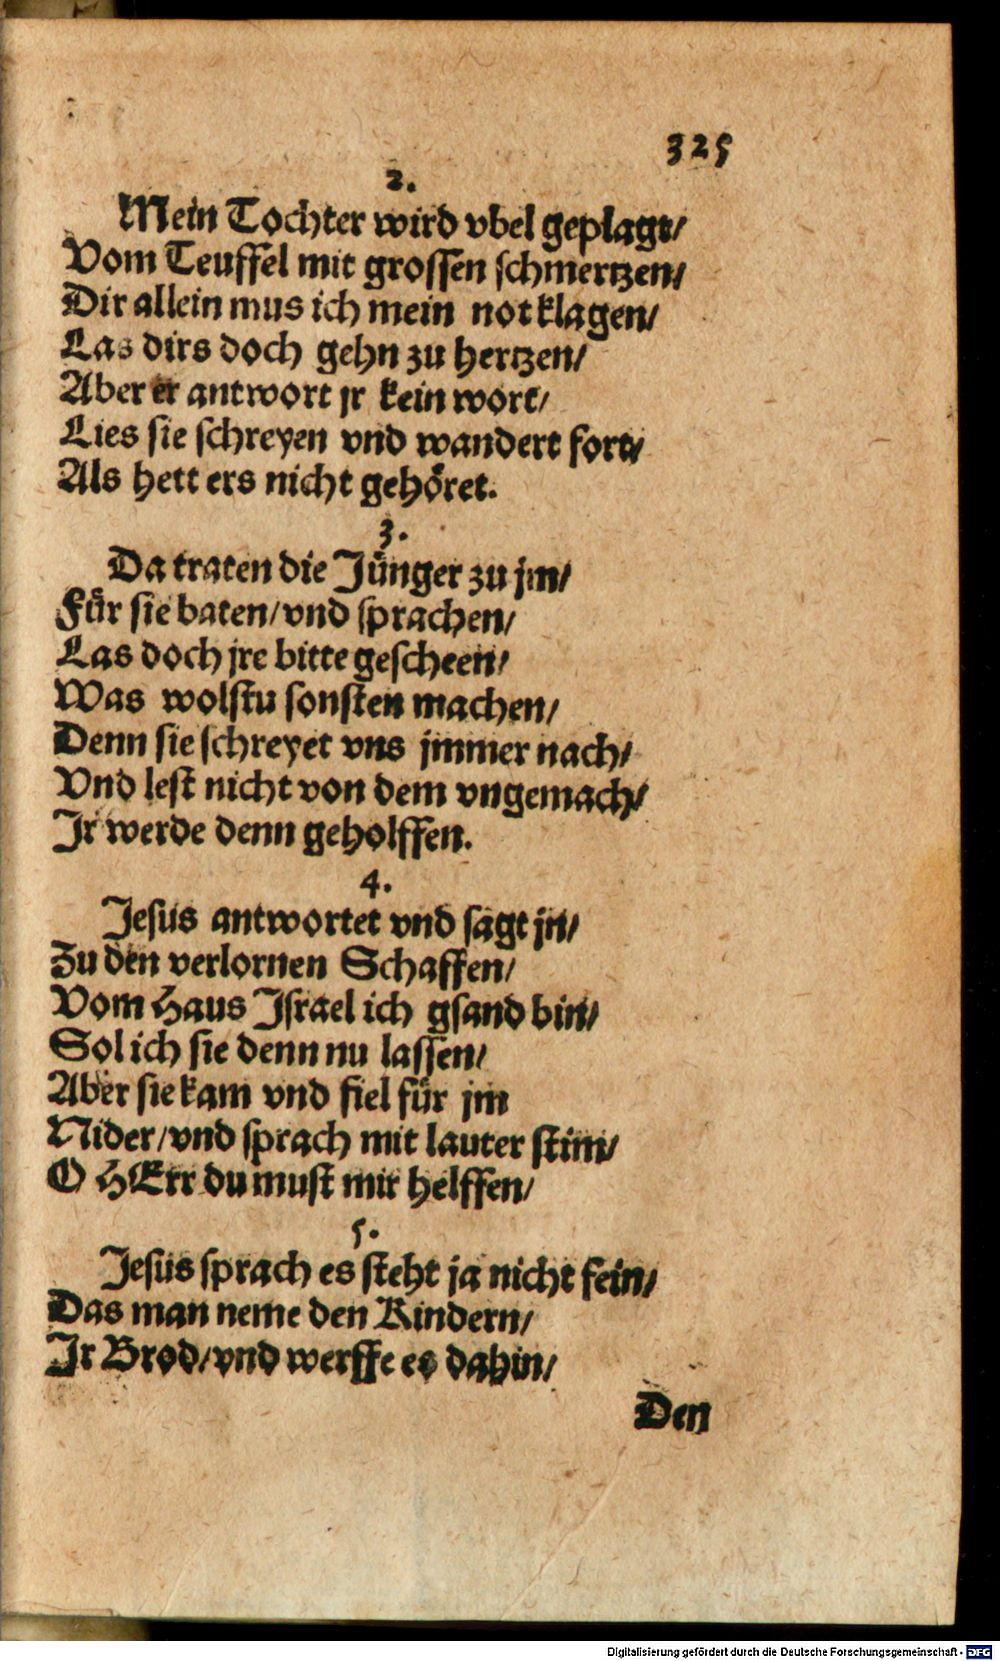 325
2.
Mein Tochter wird vbel geplagt/
Vom Teuffel mit grossen schmertzen/
Dir allein mus ich mein not klagen/
Las dirs doch gehn zu hertzen/
Aber er antwort jr kein wort/
Lies sie schreyen vnd wandert fort/
Als hett ers nicht gehöret.
3.
Da traten die Jünger zu jm/
Für sie baten/vnd sprachen/
Las doch jre bitte gescheen/
Was wolstu sonsten machen/
Denn sie schreyet vns jmmer nach/
Vnd lest nicht von dem vngemach/
Jr werde denn geholffen.
4.
Jesus antwortet vnd sagt jn/
Zu den verlornen Schaffen/
Vom Haus Israel ich gsand bin/
Sol ich sie denn nu lassen/
Aber sie kam vnd fiel für jm
Nider/vnd sprach mit lauter stim/
O HErr du must mir helffen/
5.
Jesus sprach es steht ja nicht fein/
Das man neme den Kindern/
Jr Brod/vnd werffe es dahin/
Den
Digitalisierung gefördert durch die Deutsche Forschungsgemeinschaft - DFG